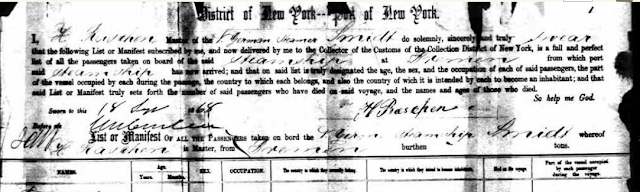 District of New York--Port of New York.
1
I, H Raschen Master of the Steamer Smidt do solemnly, sincerely and truly swear
that the following List or Manifest subscribed by me, and now delivered by me to the Collector of the Customs of the Collection District of New York, is a full and perfect
list of all the passengers taken on board of the said Steamship at Bremen from which port
said Steamship has now arrived; and that on said list is truly designated the age, the sex, and the occupation of each of said passengers, the part
of the vessel occupied by each during the passage, the country to which each belongs, and also the country of wich it is intended by each to become an inhabitant; and that
said List or Manifest truly sets forth the number of said passengers who have died on said voyage, and the names and ages of those who died.
So help me God.
Sworn to this 18 1868 H Raschen
Before me
List or Manifest OF ALL THE PASSENGERS taken on bord the Steamship Smidt whereof
H Raschen is Master, from Bremen burthen tons.
NAMES. Age. Years. Months. SEX. OCCUPATION. The country to which they severally belong. The country to which they intend to become inhabitants. Died on the voyage. Part of the vessel occupied by each passenger during the voyage.